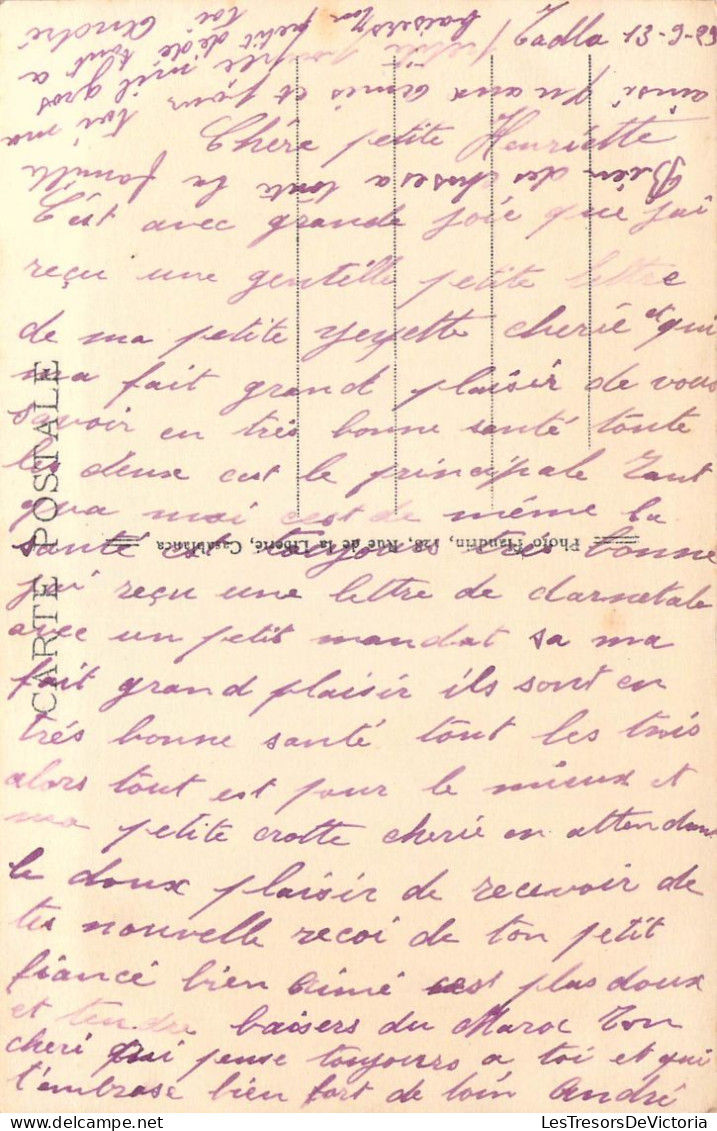 Tadla 13-6-29
Chére petite Henriette
C'ést avec grande joie que jai
reçu une gentille petite lettre
de ma petite yeyette cherie et qui
ma fait grand plaisir de vous
savoir en trés bonne santé toute
les deux cest le principale Tant
qua moi cest de même la
santé est toujours trés bonne
jai reçu une lettre de darnetale
avec un petit mandat sa ma
fait grand plaisir ils sont en
trés bonne santé tout les trois
alors tout est pour le mieux et
ma petite crotte cherie en attendant
le doux plaisir de recevoir de
tes nouvelle recoi de ton petit
fiancé bien aimé ses plus doux
et tendre baisers du Maroc Ton
cheri qui pense toujours a toi et qui
t'embrase bien fort de loin André
Bien des choses a toute la famille
ainsi qu'aux amis et pour toi ma
petite poupée mil gros
baisers ton petit dédé tout a
toi André
CARTE POSTALE
Photo Flandrin, 128, Rue de la Liberté, Casablanca
LesTresorsDeVictoria
delcampe.net